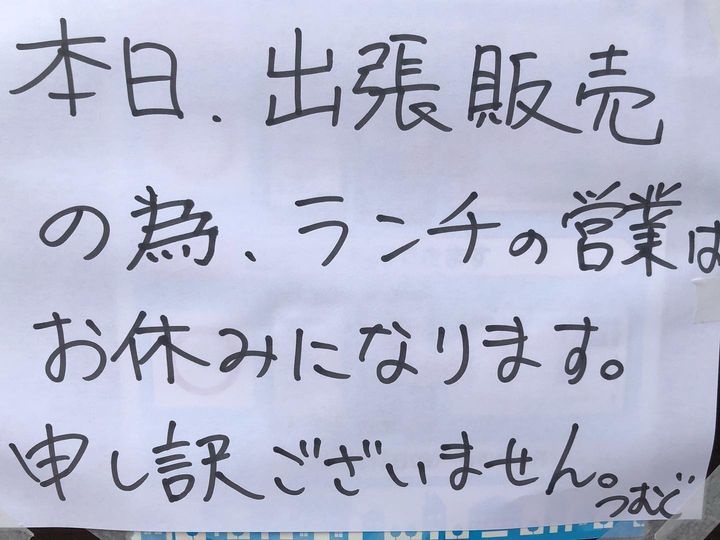 本日、出張販売
の為、ランチの営業は
お休みになります。
申し訳ございません。
つむぐ